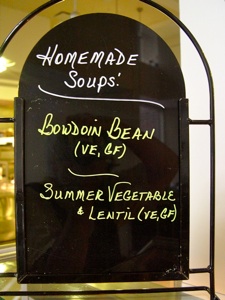 HOMEMADE
SOUPS!
BOWDOIN BEAN
(VE, GF)
SUMMER VEGETABLE
& LENTIL (VE, GF)